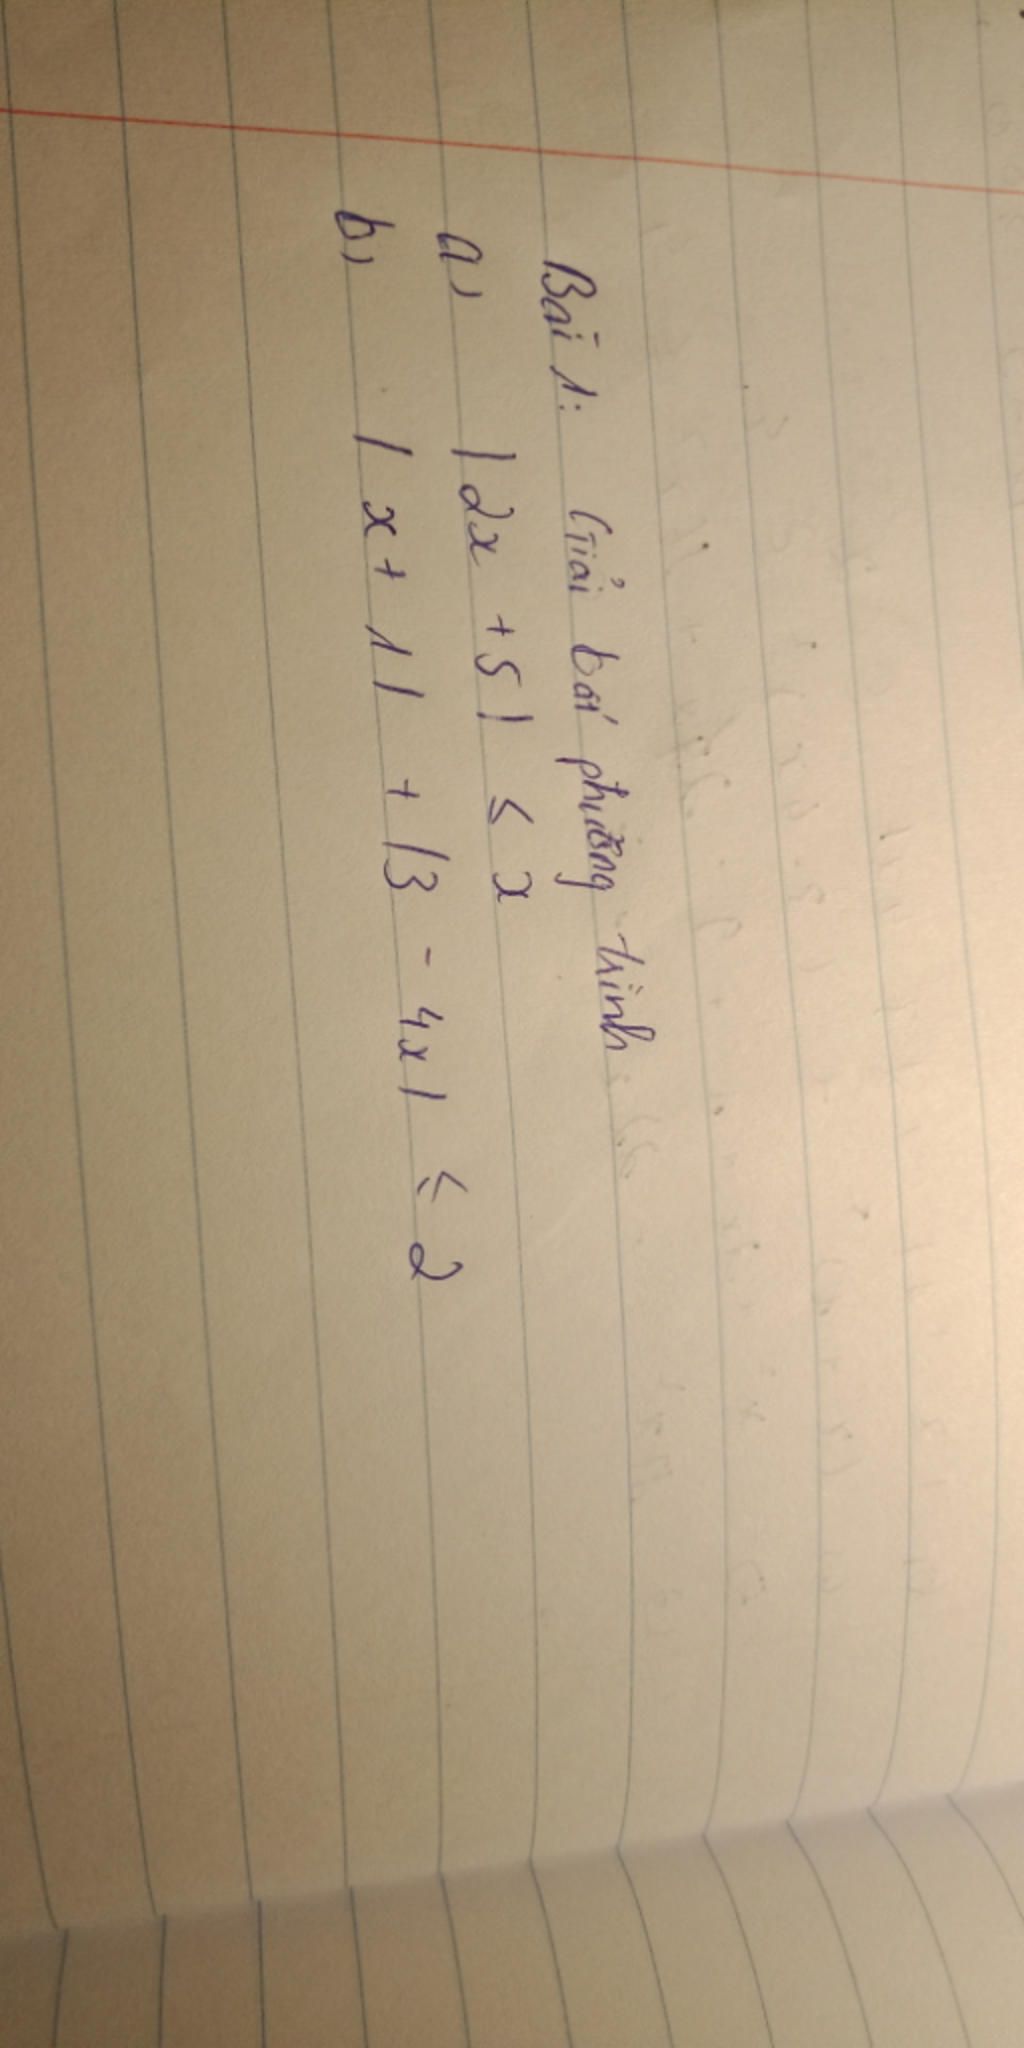 Bài 1: Giải bất phương trình
a) |2x + 5| ≤ x
b) |x + 1| + |3 - 4x| ≤ 2